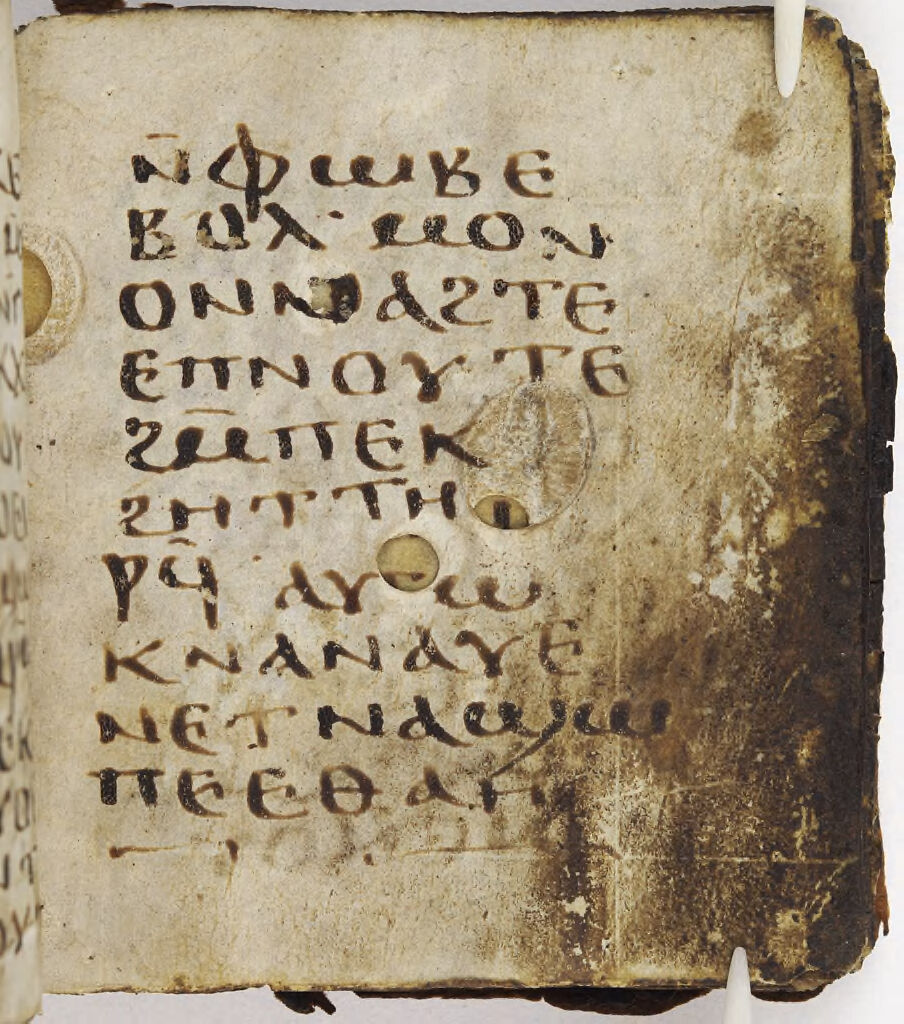 ⲛ̄ⲫⲱⲃⲉ
ⲃⲟⲗ· ⲙⲟⲛ
ⲟⲛⲛⲁϩⲧⲉ
ⲉⲡⲛⲟⲩⲧⲉ
ϩⲙ̄ⲡⲉⲕ
ϩⲏⲧⲧⲏ
ⲣϥ̄ ⲁⲩⲱ
ⲕⲛⲁⲛⲁⲩⲉ
ⲛⲉⲧⲛⲁϣⲱ
ⲡⲉⲉⲑⲁⲏ